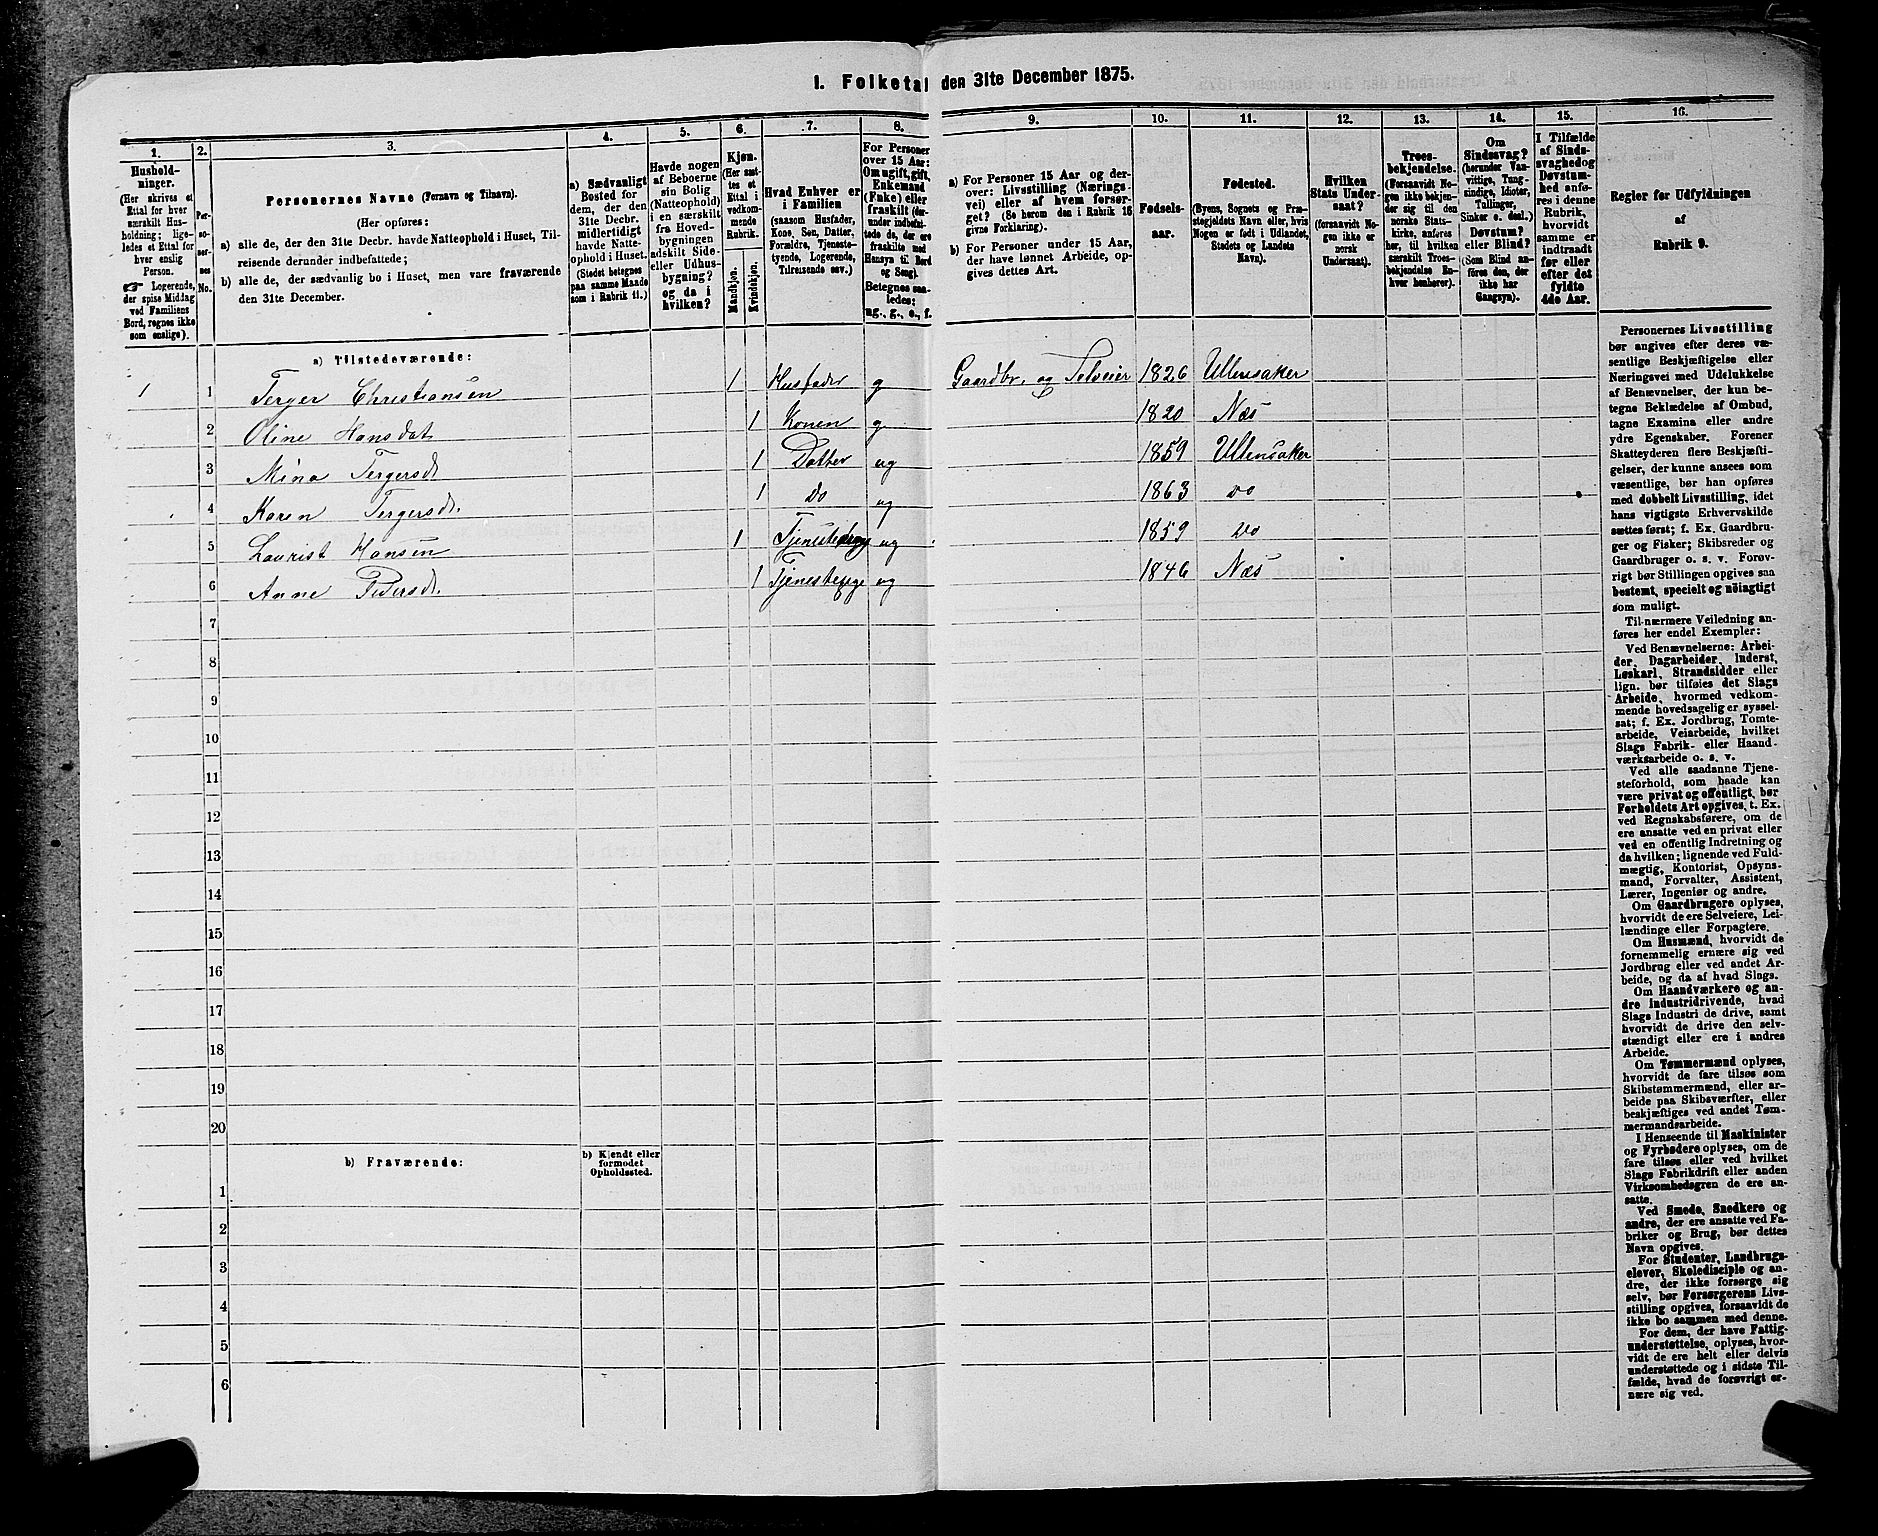 I. Folketal den 31te December 1875.
1. 2. 3. 4. 5. 6. 7. 8. 9. 10. 11. 12. 13. 14. 15. 16.
Hushold-
ninger.
(Her skrives et
Ettal for hver
særskilt Hus-
holdning; lige-
ledes et Ettal for
hver enslig
Person.
☞ Logerende,
der spise Middag
ved Familiens
Bord, regnes ikke
som enslige).
Per-
so-
ner-
nes
No.
Personernes Navne (Fornavn og Tilnavn).
(Her opføres:
a) alle de, der den 31te Decbr. havde Natteophold i Huset, Til-
reisende derunder indbefattede;
b) alle de, der sædvanlig bo i Huset, men vare fraværende
den 31te December.
a) Sædvanligt
Bosted for
dem, der den
31te Decbr.
midlertidigt
havde Natte-
ophold i Huset.
(Stedet betegnes
paa samme Maade
som i Rubrik 11.)
Havde nogen
af Beboerne
sin Bolig
(Natteophold)
i en særskilt
fra Hoved-
bygningen
adskilt Side-
eller Udhus-
bygning?
og da i
hvilken?
Kjøn.
(Her sæt-
tes et
Ettal i
vedkom-
mende
Rubrik.
Mandkjøn.
Kvindekjøn.
Hvad Enhver er
i Familien
(saasom Husfader,
Kone, Søn, Datter,
Forældre, Tjeneste-
tyende, Logerende,
Tilreisende osv.)
For Personer
over 15 Aar:
Om ugift, gift,
Enkemand
(Enke) eller
fraskilt (der-
under indbefat-
tede de, der ere
fraskilte med
Hensyn til Bord
og Seng).
Betegnes saa-
ledes:
ug., g., e., f.
a) For Personer 15 Aar og der-
over: Livsstilling (Nærings-
vei) eller af hvem forsør-
get? (Se herom den i Rubrik 16
givne Forklaring).
b) For Personer under 15 Aar,
der have lønnet Arbeide, op-
gives dettes Art.
Fødsels-
aar.
Fødested.
(Byens, Sognets og Præ-
stegjeldets Navn eller, hvis
Nogen er født i Udlandet,
Stedets og Landets
Navn).
Hvilken
Stats Under-
saat?
(forsaavidt No-
gen ikke er
norsk
Undersaat).
Troes-
bekjendelse.
(Forsaavidt No-
gen ikke bekjen-
der sig til den
norske Stats-
kirke, anføres
her, til hvilken
særskilt Troes-
bekjendelse En-
hver henhører).
Om
Sindssvag?
(herunder Van-
vittige, Tung-
sindige, Idioter,
Tullinger,
Sinker o. desl.)
Døvstum?
eller Blind?
(Som Blind an-
føres den, der
ikke har
Gangsyn).
I Tilfælde
af Sinds-
svaghed og
Døvstum-
hed anfø-
res i denne
Rubrik,
hvorvidt
samme er
indtraadt
før eller
efter det
fyldte
4de Aar.
Regler for Udfyldningen
af
Rubrik 9.
a) Tilstedeværende:
1 1 Terger Christiansen 1 Husfader g Gaardbr. og Selveier 1826 Ullensaker
2 Oline Hansdat 1 Konen g 1820 Næs
3 Mina Tergersd. 1 Datter ug 1859 Ullensaker
4 Karen Tergersd. 1 Do ug 1863 do
5 Laurist Hansen 1 Tjenestedreng ug 1859 Do
6 Anne Pedersd. 1 Tjenestepige ug 1846 Næs
7
8
9
10
11
12
13
14
15
16
17
18
19
20
b) Fraværende:
b) Kjendt eller
formodet
Opholdssted.
1
2
3
4
5
6
Personernes Livsstilling
bør angives efter deres væ-
sentlige Beskjæftigelse eller
Næringsvei med Udelukkelse
af Benævnelser, der kun be-
tegne Beklædelse af Ombud,
tagne Examina eller andre
ydre Egenskaber. Forener
Skatteyderen flere Beskjæfti-
gelser, der kunne ansees som
væsentlige, bør han opføres
med dobbelt Livsstilling, idet
hans vigtigste Erhvervskilde
sættes først; f. Ex. Gaardbru-
ger og Fisker; Skibsreder og
Gaardbruger o. s. v. Forøv-
rigt bør Stillingen opgives saa
bestemt, specielt og nøiagtigt
som muligt.
Til nærmere Veiledning an-
føres her endel Exempler:
Ved Benævnelserne: Arbei-
der, Dagarbeider, Inderst,
Løskarl, Strandsidder eller
lign. bør tilføies det Slags
Arbeide, hvormed vedkom-
mende hovedsagelig er syssel-
sat; f. Ex. Jordbrug, Tomte-
arbeide, Veiarbeide, hvilket
Slags Fabrik- eller Haand-
værksarbeide o. s. v.
Ved alle saadanne Tjene-
steforhold, som baade kan
være privat og offentligt, bør
Forholdets Art opgives, t. Ex.
ved Regnskabsførere, om de
ere ansatte ved en privat eller
ved en offentlig Indretning og
da hvilken; lignende ved Fuld-
mægtig, Kontorist, Opsyns-
mand, Forvalter, Assistent,
Lærer, Ingeniør og andre.
Om Gaardbrugere oplyses,
hvorvidt de ere Selveiere, Lei-
lændinge eller Forpagtere.
Om Husmænd, hvorvidt de
fornemmelig ernære sig ved
Jordbrug eller ved andet Ar-
beide, og da af hvad Slags.
Om Haandværkere og an-
dre Industridrivende, hvad
Slags Industri de drive, samt
hvorvidt de drive den selv-
stændigt eller ere i andres
Arbeide.
Om Tømmermænd oplyses,
hvorvidt de fare tilsøs som
Skibstømmermænd, eller ar-
beide paa Skibsværfter, eller
beskjæftiges ved andet Tøm-
mermandsarbeide.
I Henseende til Maskinister
og Fyrbødere oplyses, om de
fare tilsøs eller ved hvilket
Slags Fabrikdrift eller anden
Virksomhedsgren de ere an-
satte.
Ved Smede, Snedkere og
andre, der ere ansatte ved Fa-
briker og Brug, bør dettes
Navn opgives.
For Studenter, Landbrugs-
elever, Skoledisciple og an-
dre, der ikke forsørge sig
selv, bør Forsørgerens Livs-
stilling opgives, forsaavidt de
ikke bo sammen med denne.
For dem, der have Fattig-
understøttelse, oplyses, hvor-
vidt de ere helt eller delvis
understøttede og i sidste Til-
fælde, hvad de forøvrigt er-
nære sig ved.